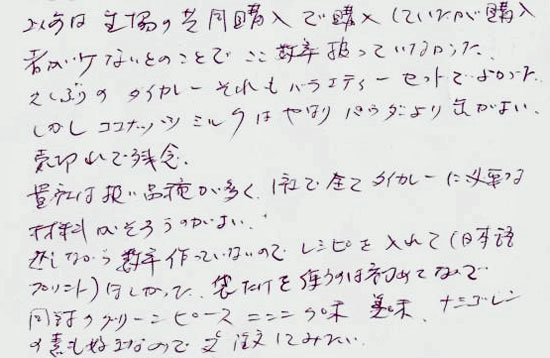 以前は生協の共同購入で購入していたが購入
者が少ないとのことでここ数年扱っていなかった。
久しぶりのタイカレーそれもバラエティーセットでよかった。
しかしココナッツミルクはやはりパウダより缶がよい。
売切れで残念。
貴社は扱い品種が多く、1社で全てタイカレーに必要な
材料がそろうのがよい。
しながら数年作っていないのでレシピを入れて(日本語
プリント)ほしかった、袋だけを使うのは初めてなので
同封のグリーンピース ココナツ味 黒味、ナシゴレン
の素も好きなので又注文してみたい。